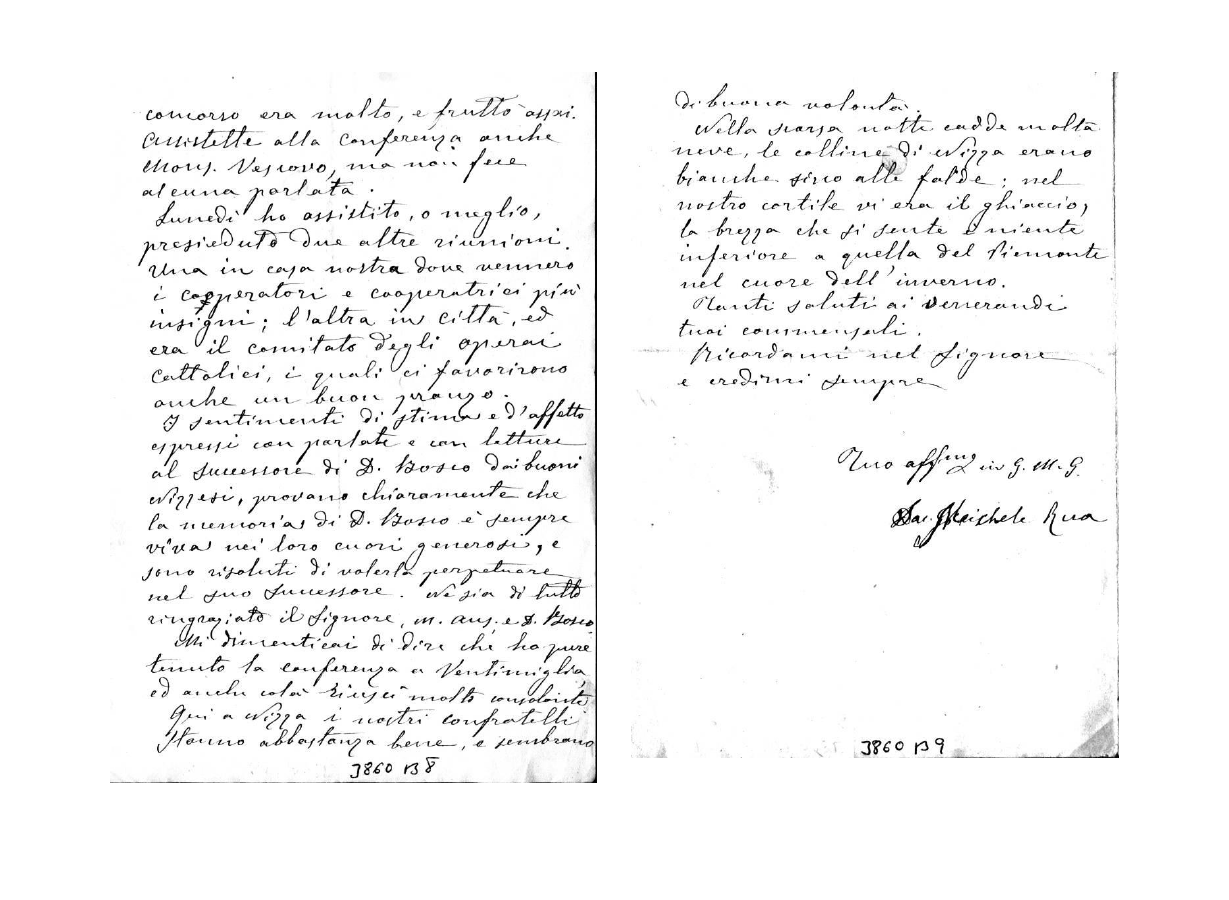 concorso era molto, e fruttò assai.
Assistette alla conferenza anche
Mons. Vescovo, ma non fece
alcuna parlata.
Lunedì ho assistito, o meglio,
presieduto due altre riunioni.
Una in casa nostra dove vennero
i cooperatori e cooperatrici più
insigni; l'altra in città, ed
era il comitato degli operai
Cattolici, i quali ci favorirono
anche un buon pranzo.
I sentimenti di stima e d'affetto
espressi con parlate e con letture
al successore di D. Bosco dai buoni
Nizzesi, provano chiaramente che
la memoria di D. Bosco è sempre
viva nei loro cuori generosi, e
sono risoluti di volerla perpetuare
nel suo successore. Ne sia di tutto
ringraziato il Signore, M. Aus. e D. Bosco.
Mi dimenticai di dire che ho pure
tenuto la conferenza a Ventimiglia,
ed anche colà riuscì molto consolante
Qui a Nizza i nostri confratelli
stanno abbastanza bene, e sembrano
3860 B8
di buona volontà.
Nella scorsa notte cadde molta
neve, le colline di Nizza erano
bianche sino alle falde; nel
nostro cortile vi era il ghiaccio,
la brezza che si sente è niente
inferiore a quella del Piemonte
nel cuore dell'inverno.
Tanti saluti ai venerandi
tuoi commensali.
Ricordami nel Signore
e credimi sempre
Tuo affmo in G. M. G.
Sac. Michele Rua
3860 B9